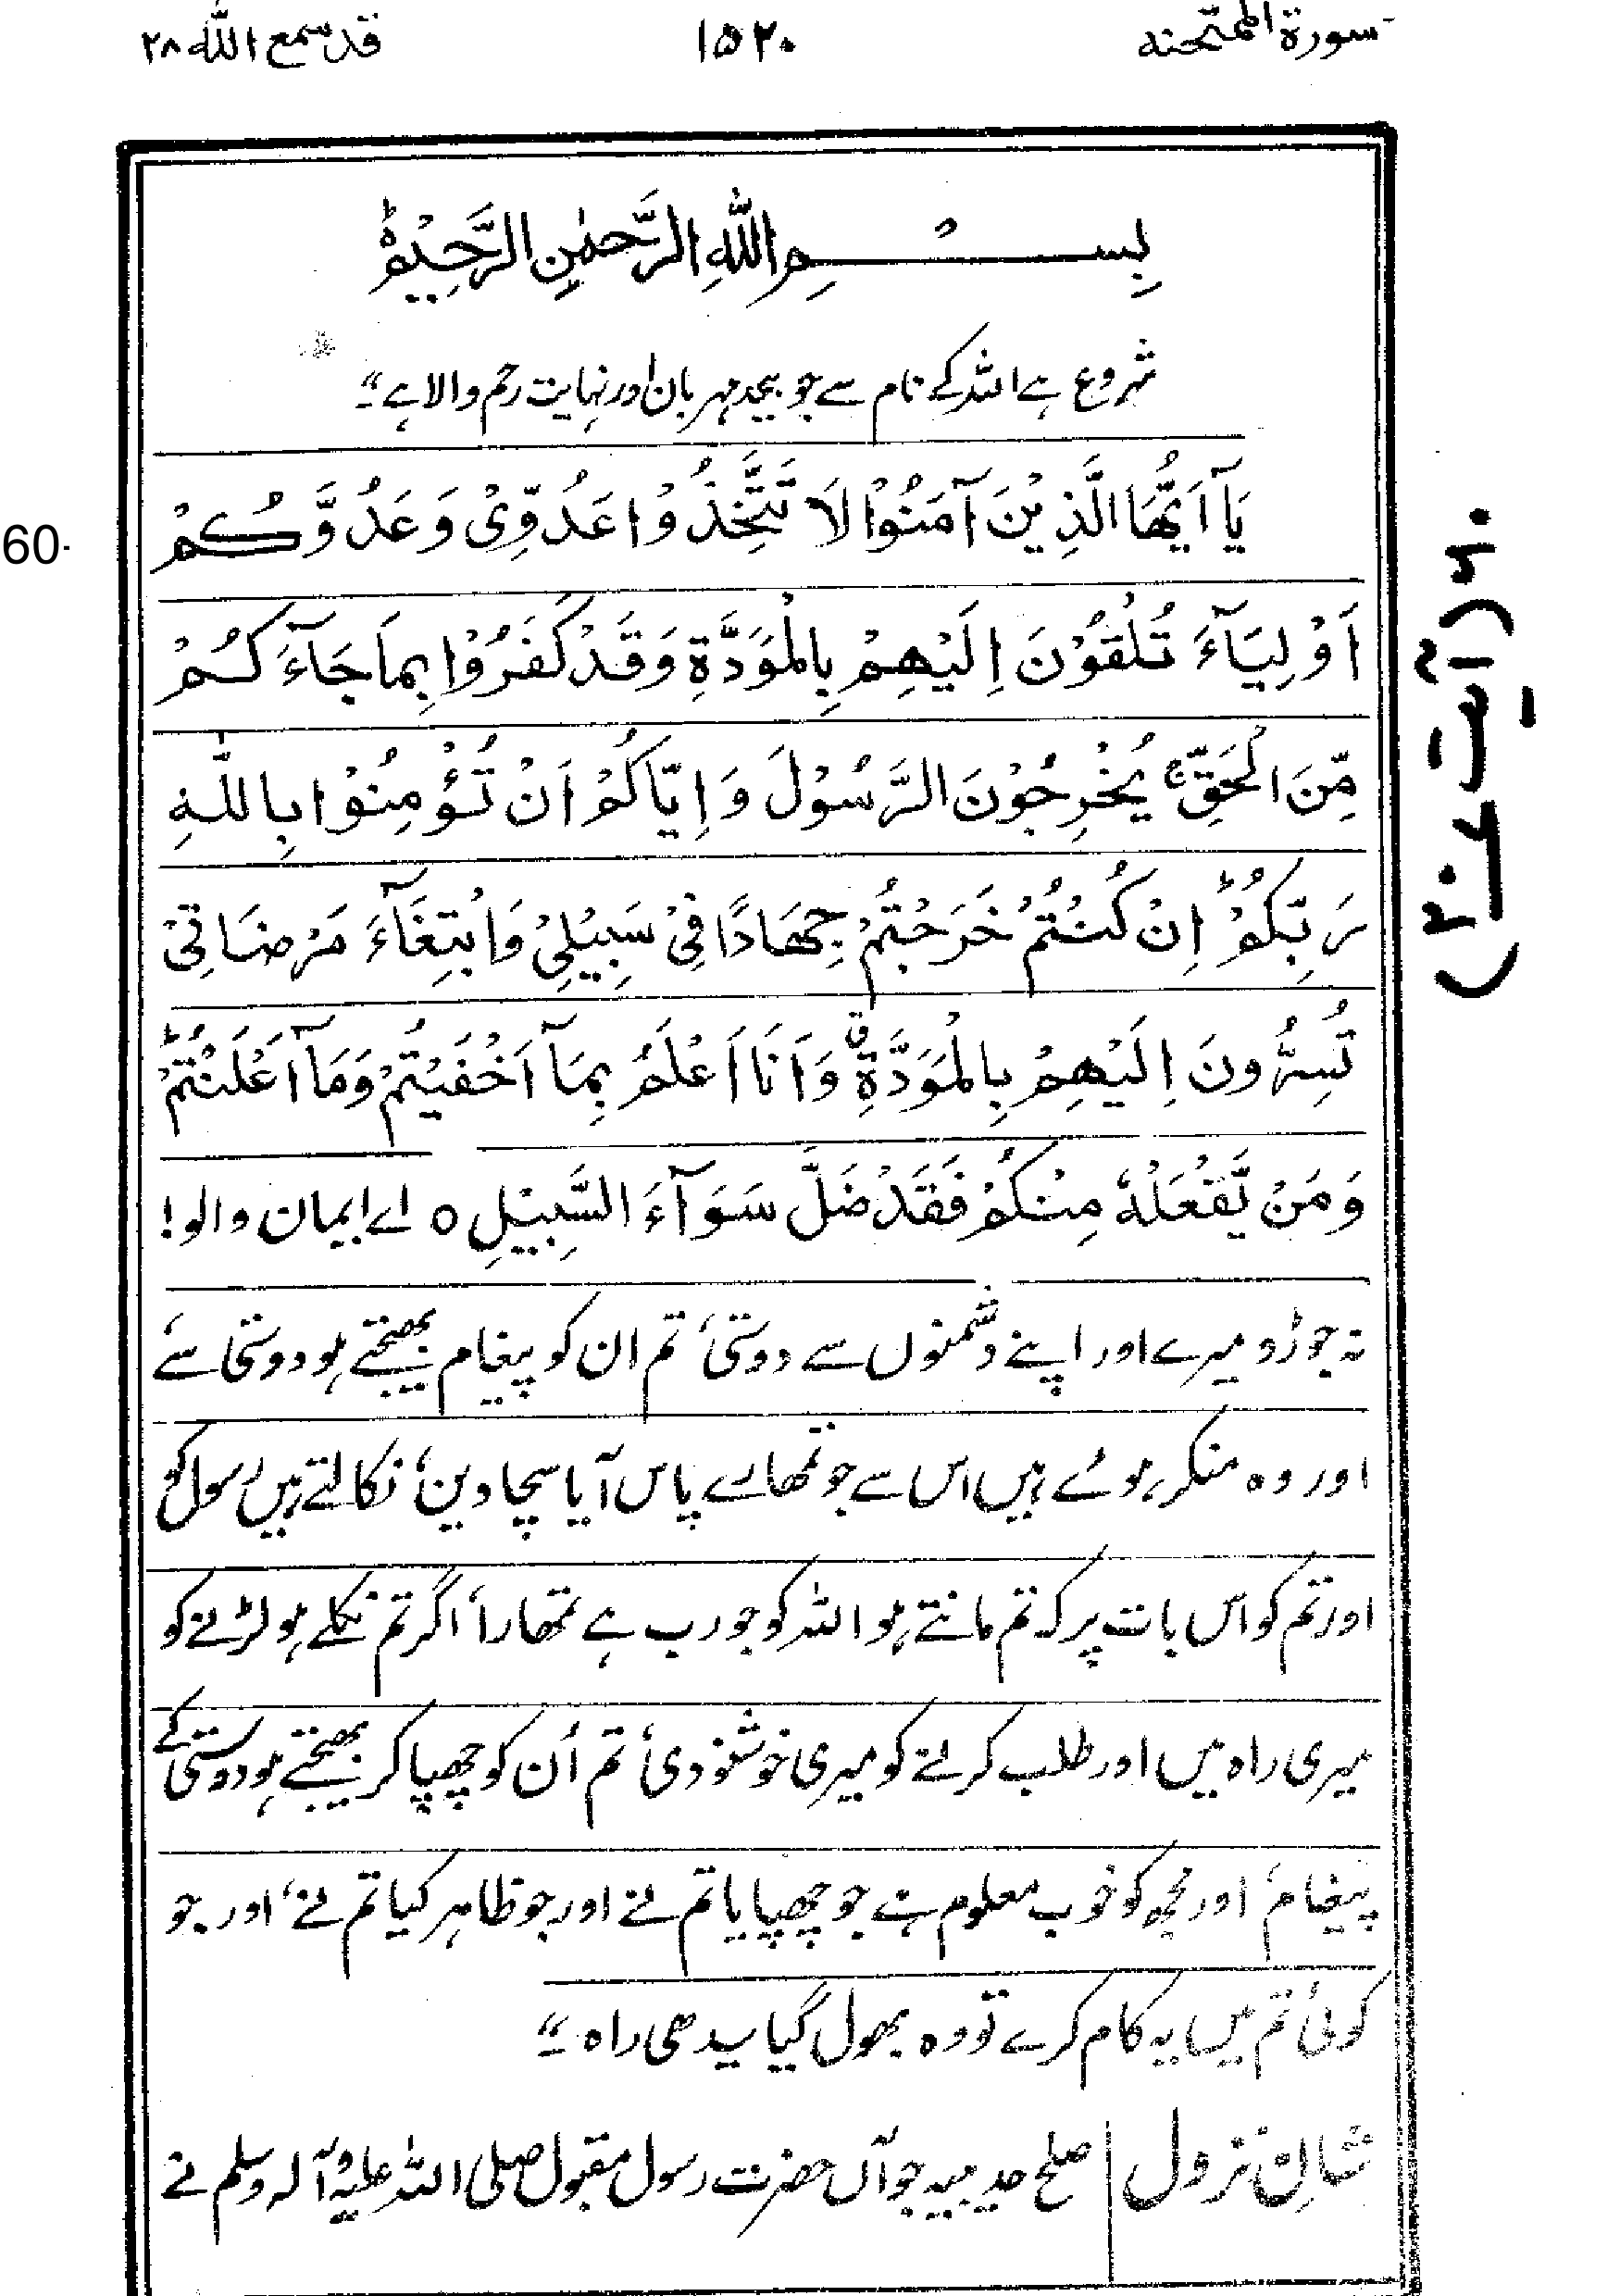 سورۃ الممتحنہ ۱۵۲۰ قد سمع اللہ ۲۸
بِسْمِ اللهِ الرَّحْمٰنِ الرَّحِيْمِؕ
شروع ہے اللہ کے نام سے جو بیحد مہربان اور نہایت رحم والا ہے ؂"
يَآ اَيُّهَا الَّذِيْنَ آمَنُوْا لَا تَتَّخِذُوْا عَدُوِّىْ وَعَدُوَّكُمْ
60.
اَوْلِيَآءَ تُلْقُوْنَ اِلَيْهِمْ بِالْمَوَدَّةِ وَقَدْ كَفَرُوْا بِمَا جَآءَكُمْ
مِّنَ الْحَقِّ ۚ يُخْرِجُوْنَ الرَّسُوْلَ وَاِيَّاكُمْ اَنْ تُؤْمِنُوْا بِاللّٰهِ
رَبِّكُمْ ؕ اِنْ كُنْتُمْ خَرَجْتُمْ جِهَادًا فِىْ سَبِيْلِىْ وَابْتِغَآءَ مَرْضَاتِىْ
تُسِرُّونَ اِلَيْهِمْ بِالْمَوَدَّةِ ۖ وَاَنَا اَعْلَمُ بِمَآ اَخْفَيْتُمْ وَمَآ اَعْلَنْتُمْؕ
وَمَنْ يَّفْعَلْهُ مِنْكُمْ فَقَدْ ضَلَّ سَوَآءَ السَّبِيْلِ ۵ اے ایمان والو!
نہ جوڑو میرے اور اپنے دشمنوں سے دوستی، تم ان کو پیغام بھیجتے ہو دوستی سے،
اور وہ منکر ہوئے ہیں اس سے جو تمھارے پاس آیا سچا دین، نکالتے ہیں رسول کو
اور تم کو اس بات پر کہ تم مانتے ہو اللہ کو جو رب ہے تمھارا، اگر تم نکلے ہو لڑنے کو
میری راہ میں اور طلب کرنے کو میری خوشنودی، تم اُن کو چھپا کر بھیجتے ہو دوستی کے
پیغام، اور مجھ کو خوب معلوم ہے جو چھپایا تم نے اور جو ظاہر کیا تم نے، اور جو
کوئی تم میں یہ کام کرے تو وہ بھول گیا سیدھی راہ ؂"
شانِ نزول | صلح حدیبیہ جو آں حضرت رسول مقبول صلی اللہ علیہ وآلہ وسلم نے